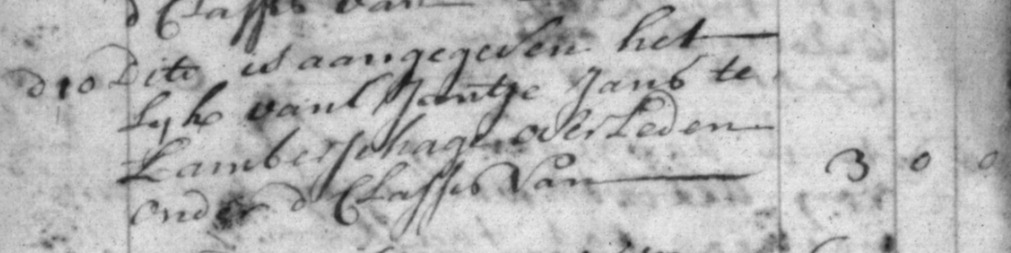 d Classis van
d 10 Dito is aangegeven het
Lyk vant Jantje Jans te
Lambertschage overLeden
onder d Classis van 3 0 0